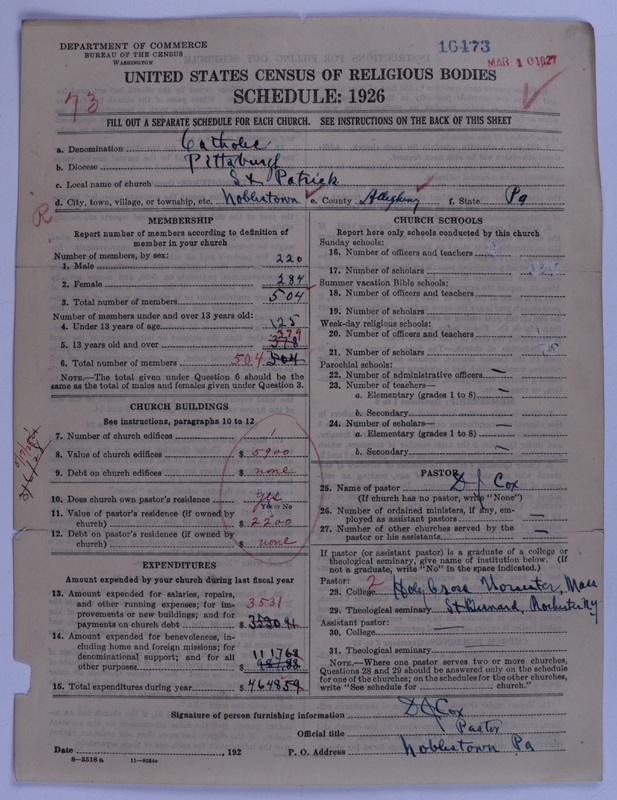 DEPARTMENT OF COMMERCE
BUREAU OF THE CENSUS
WASHINGTON
16473
MAR 10 1927
UNITED STATES CENSUS OF RELIGIOUS BODIES
SCHEDULE: 1926
73
FILL OUT A SEPARATE SCHEDULE FOR EACH CHURCH. SEE INSTRUCTIONS ON THE BACK OF THIS SHEET
a. Denomination Catholic
b. Diocese Pittsburgh
c. Local name of church St Patrick
d. City, town, village, or township, etc. Noblestown e. County Allegheny f. State Pa
R
MEMBERSHIP
Report number of members according to definition of member in your church
Number of members, by sex:
1. Male 220
2. Female 284
3. Total number of members 504
Number of members under and over 13 years old:
4. Under 13 years of age 125
5. 13 years old and over 378 379
6. Total number of members 504 504
NOTE.—The total given under Question 6 should be the same as the total of males and females given under Question 3.
CHURCH BUILDINGS
See instructions, paragraphs 10 to 12
7. Number of church edifices 1
8. Value of church edifices $ 5900
9. Debt on church edifices $ none
10. Does church own pastor's residence yes
Yes or No
11. Value of pastor's residence (if owned by church) $ 2200
12. Debt on pastor's residence (if owned by church) $ none
EXPENDITURES
Amount expended by your church during last fiscal year
13. Amount expended for salaries, repairs, and other running expenses; for improvements or new buildings; and for payments on church debt 3531 $
14. Amount expended for benevolences, including home and foreign missions; for denominational support; and for all other purposes 111768 $
15. Total expenditures during year $ 464859
CHURCH SCHOOLS
Report here only schools conducted by this church
Sunday schools:
16. Number of officers and teachers
17. Number of scholars
Summer vacation Bible schools:
18. Number of officers and teachers
19. Number of scholars
Week-day religious schools:
20. Number of officers and teachers
21. Number of scholars
Parochial schools:
22. Number of administrative officers —
23. Number of teachers—
a. Elementary (grades 1 to 8) —
b. Secondary
24. Number of scholars—
a. Elementary (grades 1 to 8) —
b. Secondary —
PASTOR
25. Name of pastor D J Cox
(If church has no pastor, write "None")
26. Number of ordained ministers, if any, employed as assistant pastors —
27. Number of other churches served by the pastor or his assistants —
If pastor (or assistant pastor) is a graduate of a college or theological seminary, give name of institution below. (If not a graduate, write "No" in the space indicated.)
Pastor:
28. College 2 Holy Cross Worcester, Mass
29. Theological seminary St Bernard, Rochester NY
Assistant pastor:
30. College —
31. Theological seminary —
NOTE.—Where one pastor serves two or more churches, Questions 28 and 29 should be answered only on the schedule for one of the churches; on the schedules for the other churches, write "See schedule for church."
Signature of person furnishing information D J Cox
Official title Pastor
Date , 192 P. O. Address Noblestown Pa
8—5518 a